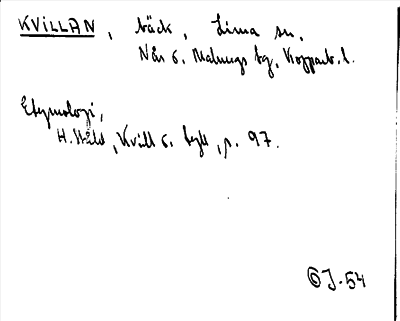 KVILLAN, bäck, Lima sn.
Nås o. Malungs tg, Kopparb. l.
Etymologi,
H. Ståhl, Kvill o. tyll, p. 97.
J-54